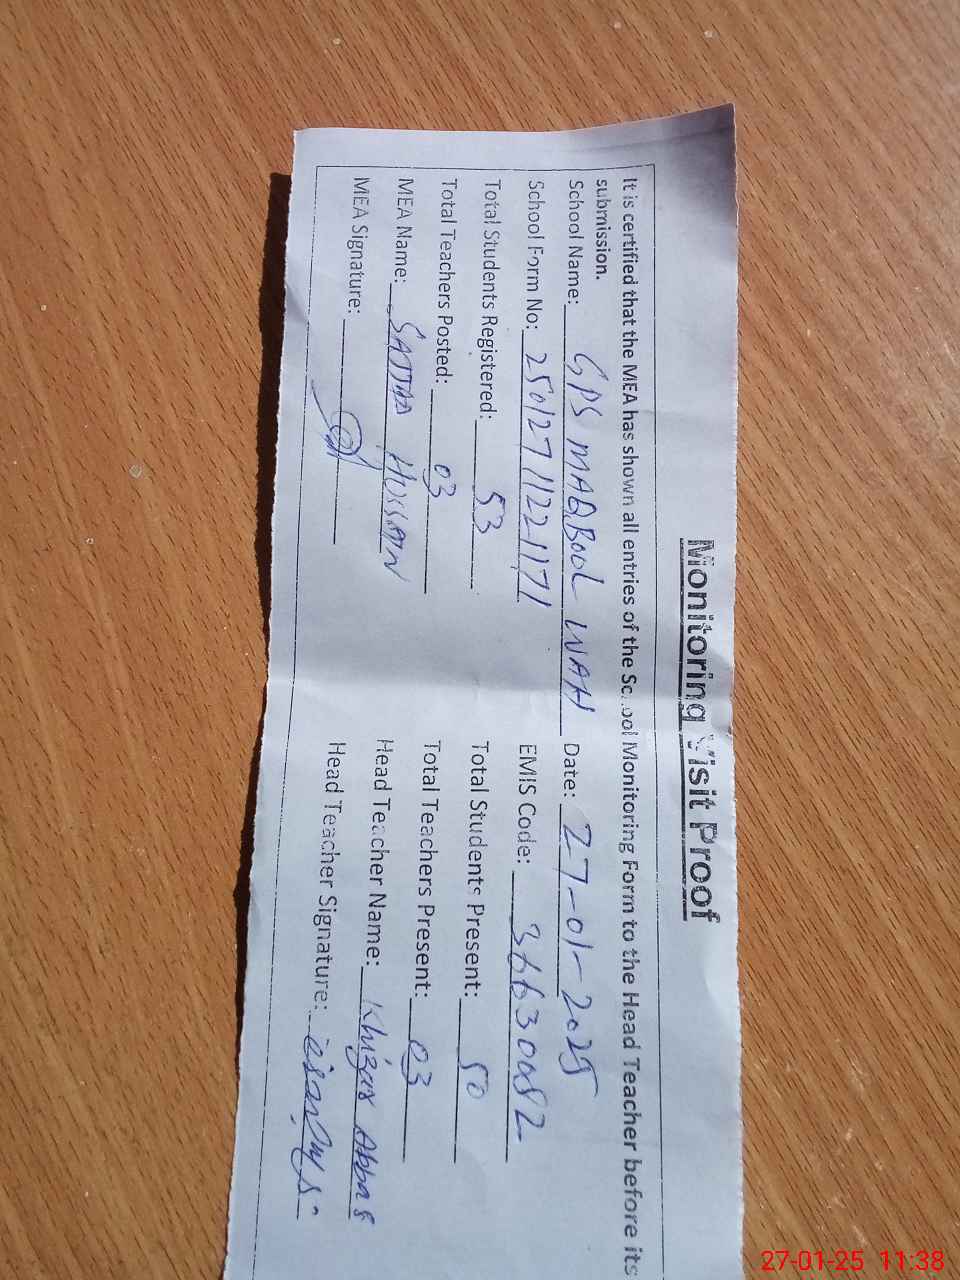 Monitoring Visit Proof
It is certified that the MEA has shown all entries of the School Monitoring Form to the Head Teacher before its
submission.
School Name: GPS MAQBOOL WAH Date: 27-01-2025
School Form No: 25012711221171 EMIS Code:
Total Students Registered: 53 Total Students Present: 50
Total Teachers Posted: 03 Total Teachers Present: 03
MEA Name: SAJJAD HUSSAIN Head Teacher Name: Khizar Abbas
MEA Signature: Head Teacher Signature:
27-01-25 11:38